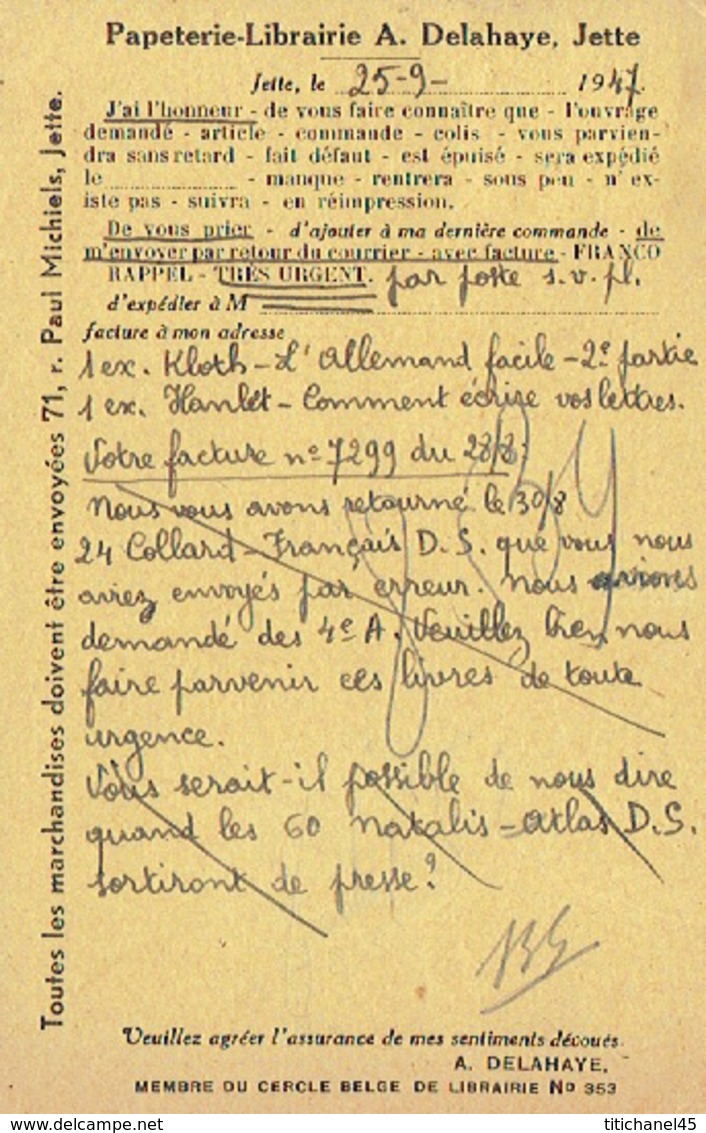 Papeterie-Librairie A. Delahaye, Jette
Jette, le 25-9- 1947.
J'ai l'honneur - de vous faire connaître que - l'ouvrage
demandé - article - commande - colis - vous parvien-
dra sans retard - fait défaut - est épuisé - sera expédié
le - manque - rentrera - sous peu - n'ex-
iste pas - suivra - en réimpression.
De vous prier - d'ajouter à ma dernière commande - de
m'envoyer par retour du courrier - avec facture - FRANCO
RAPPEL - TRÈS URGENT. par poste s.v.pl.
d'expédier à M
facture à mon adresse
1 ex. Kloth - L'Allemand facile - 2e partie
1 ex. Hanlet - Comment écrire vos lettres.
Votre facture n° 7299 du 28/8:
Nous vous avons retourné le 30/8
24 Collard - Français D.S. que vous nous
aviez envoyés par erreur. Nous avions
demandé des 4e A. Veuillez bien nous
faire parvenir ces livres de toute
urgence.
Vous serait-il possible de nous dire
quand les 60 Natalis - Atlas D.S.
sortiront de presse?
Veuillez agréer l'assurance de mes sentiments dévoués.
A. DELAHAYE,
MEMBRE DU CERCLE BELGE DE LIBRAIRIE No 353
Toutes les marchandises doivent être envoyées 71, r. Paul Michiels, Jette.
titichanel45